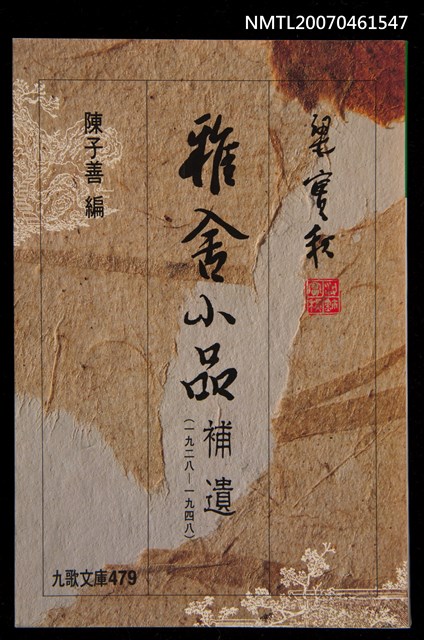 NMTL20070461547
梁實秋
雅舍小品補遺
(一九二八—一九四八)
陳子善 編
九歌文庫479